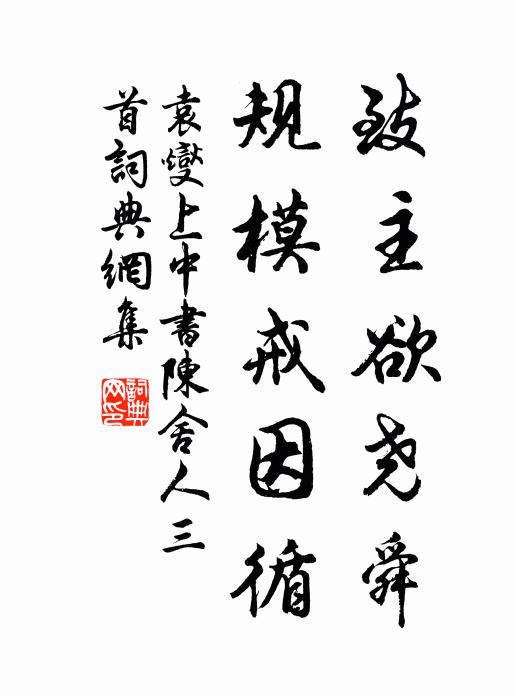 致主欲尧舜
规模戒因循
袁燮上中書陳舍人三
首詞典網集
詞典网印